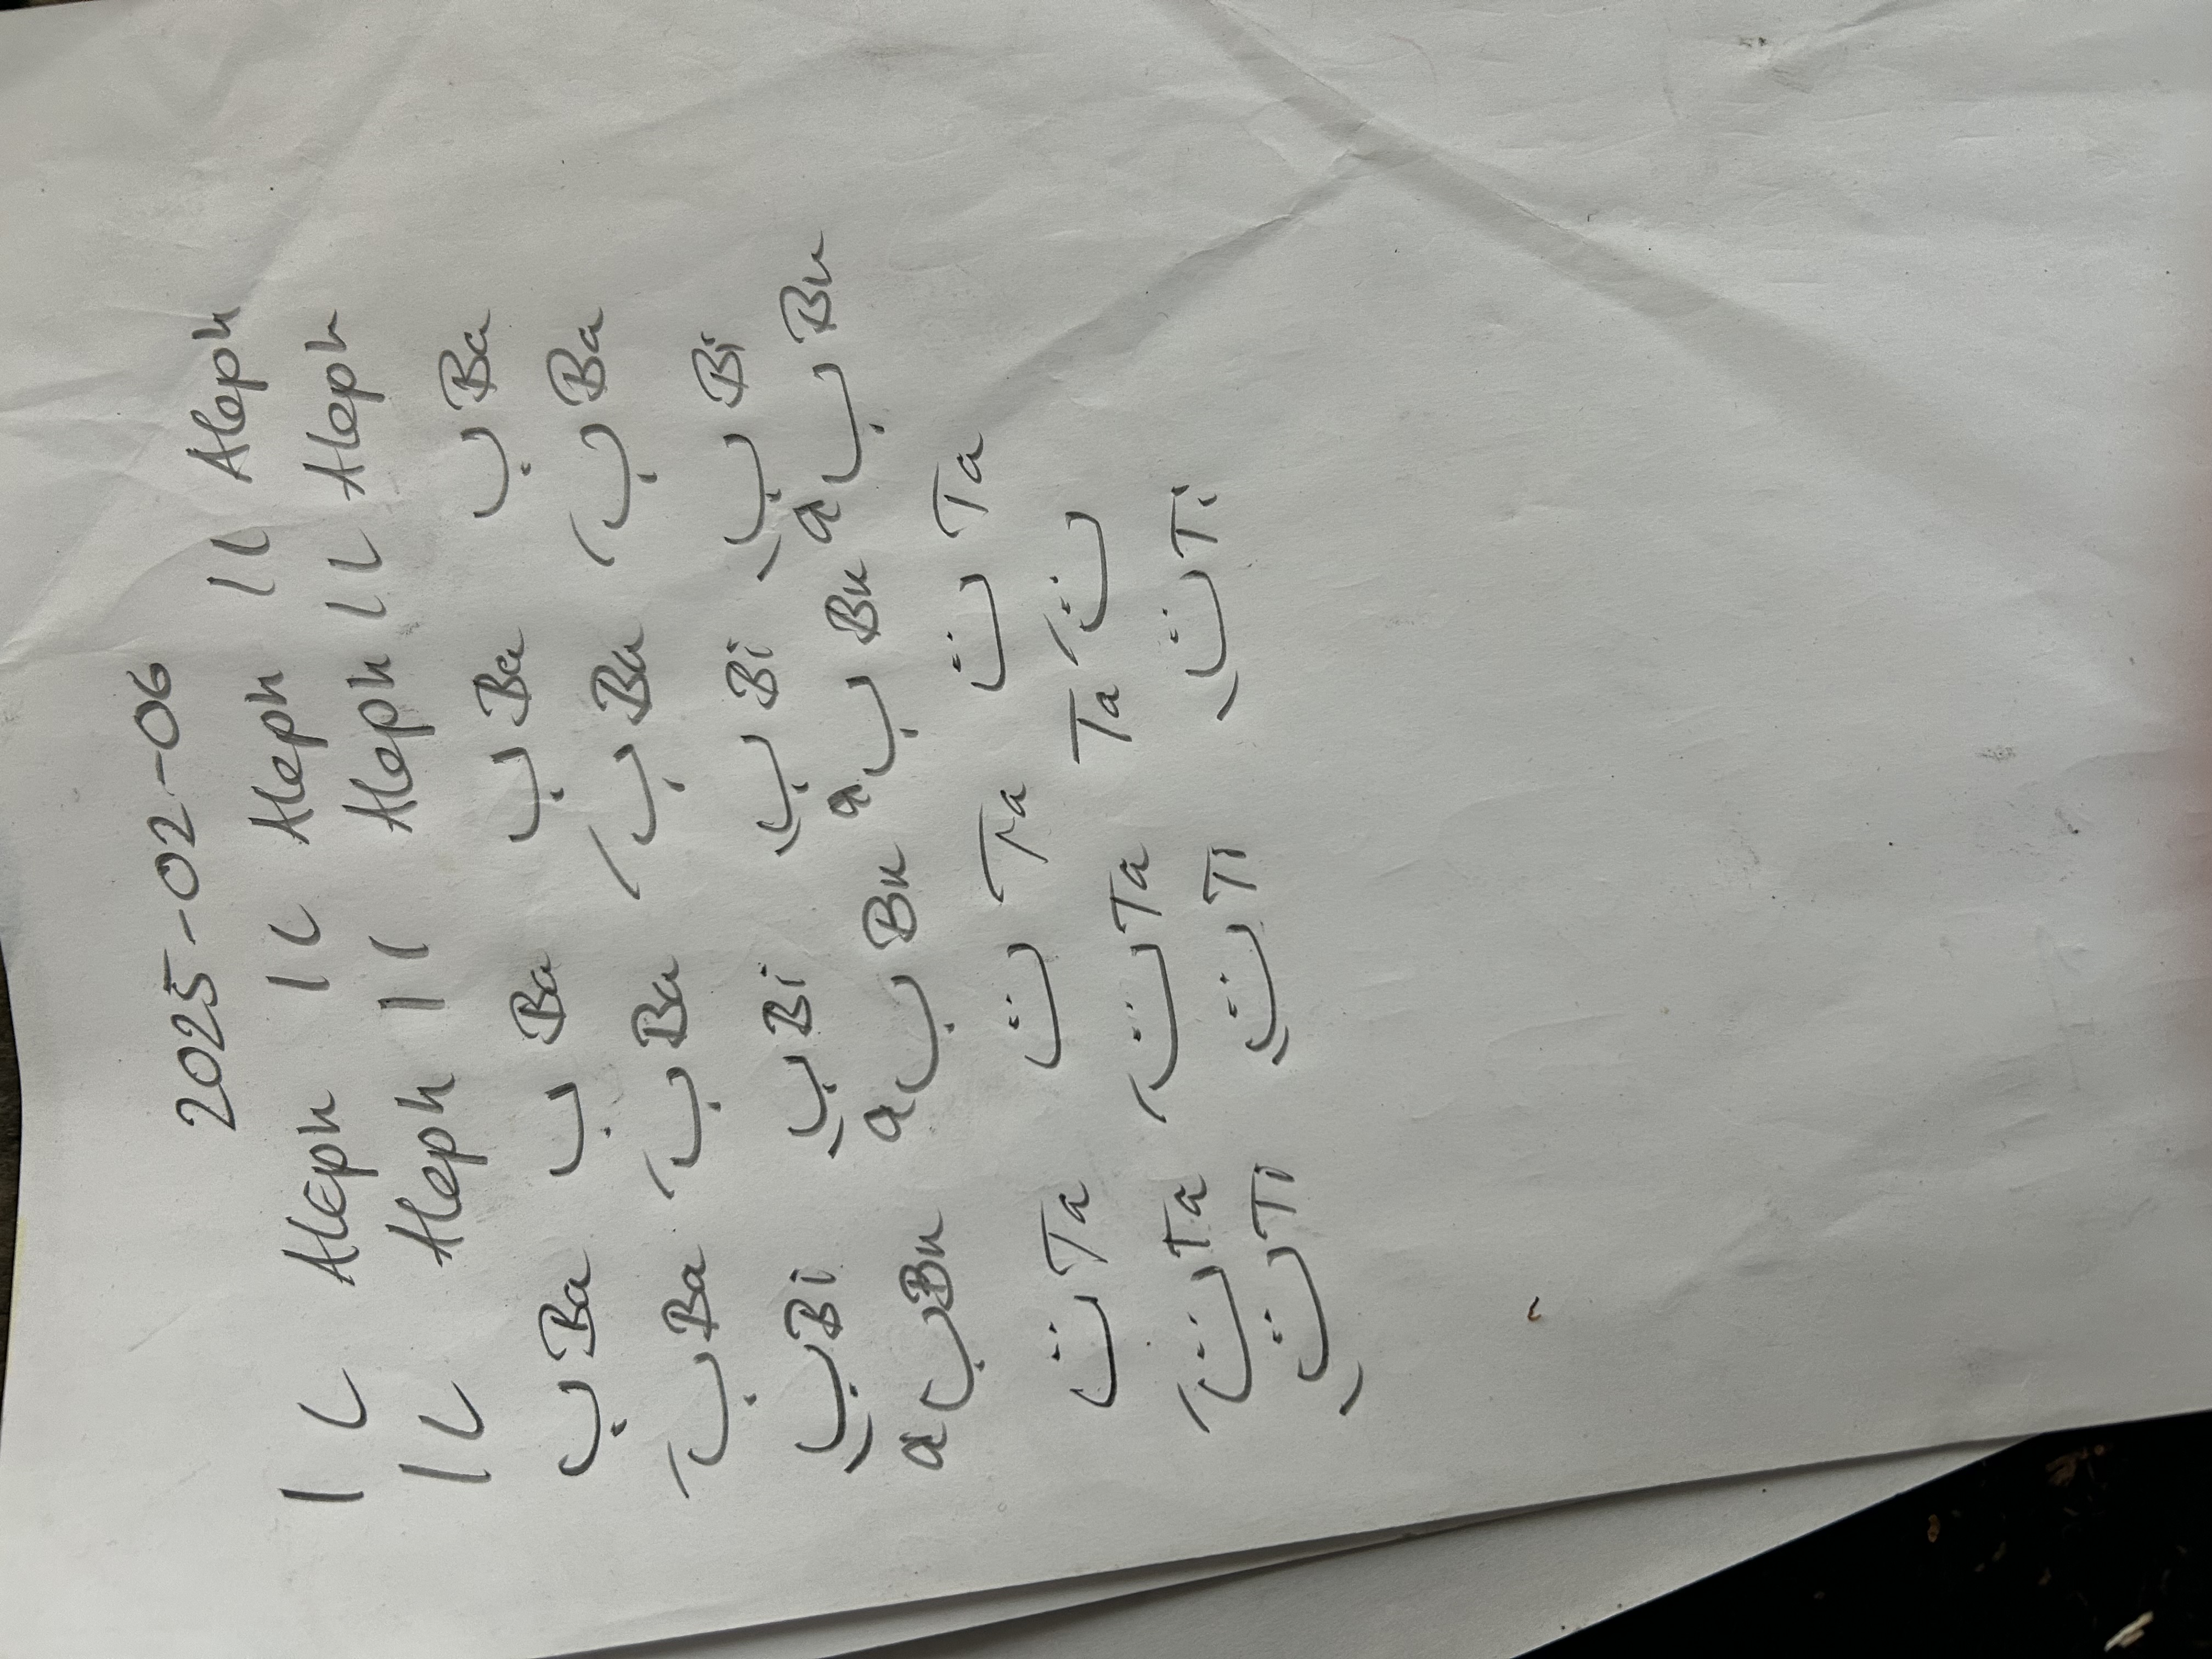 2025-02-06
ا ـا Aleph ا ـا Aleph ا ـا Aleph
ا ـا Aleph ا ـا Aleph ا ـا Aleph
ب Ba ب Ba ب Ba ب Ba
بَ Ba بَ Ba بَ Ba بَ Ba
بِ Bi بِ Bi بِ Bi بِ Bi
بُ Bu بُ Bu بُ Bu بُ Bu
ت Ta ت Ta ت Ta
تَ Ta تَ Ta Ta تَ
تِ Ti تِ Ti تِ Ti